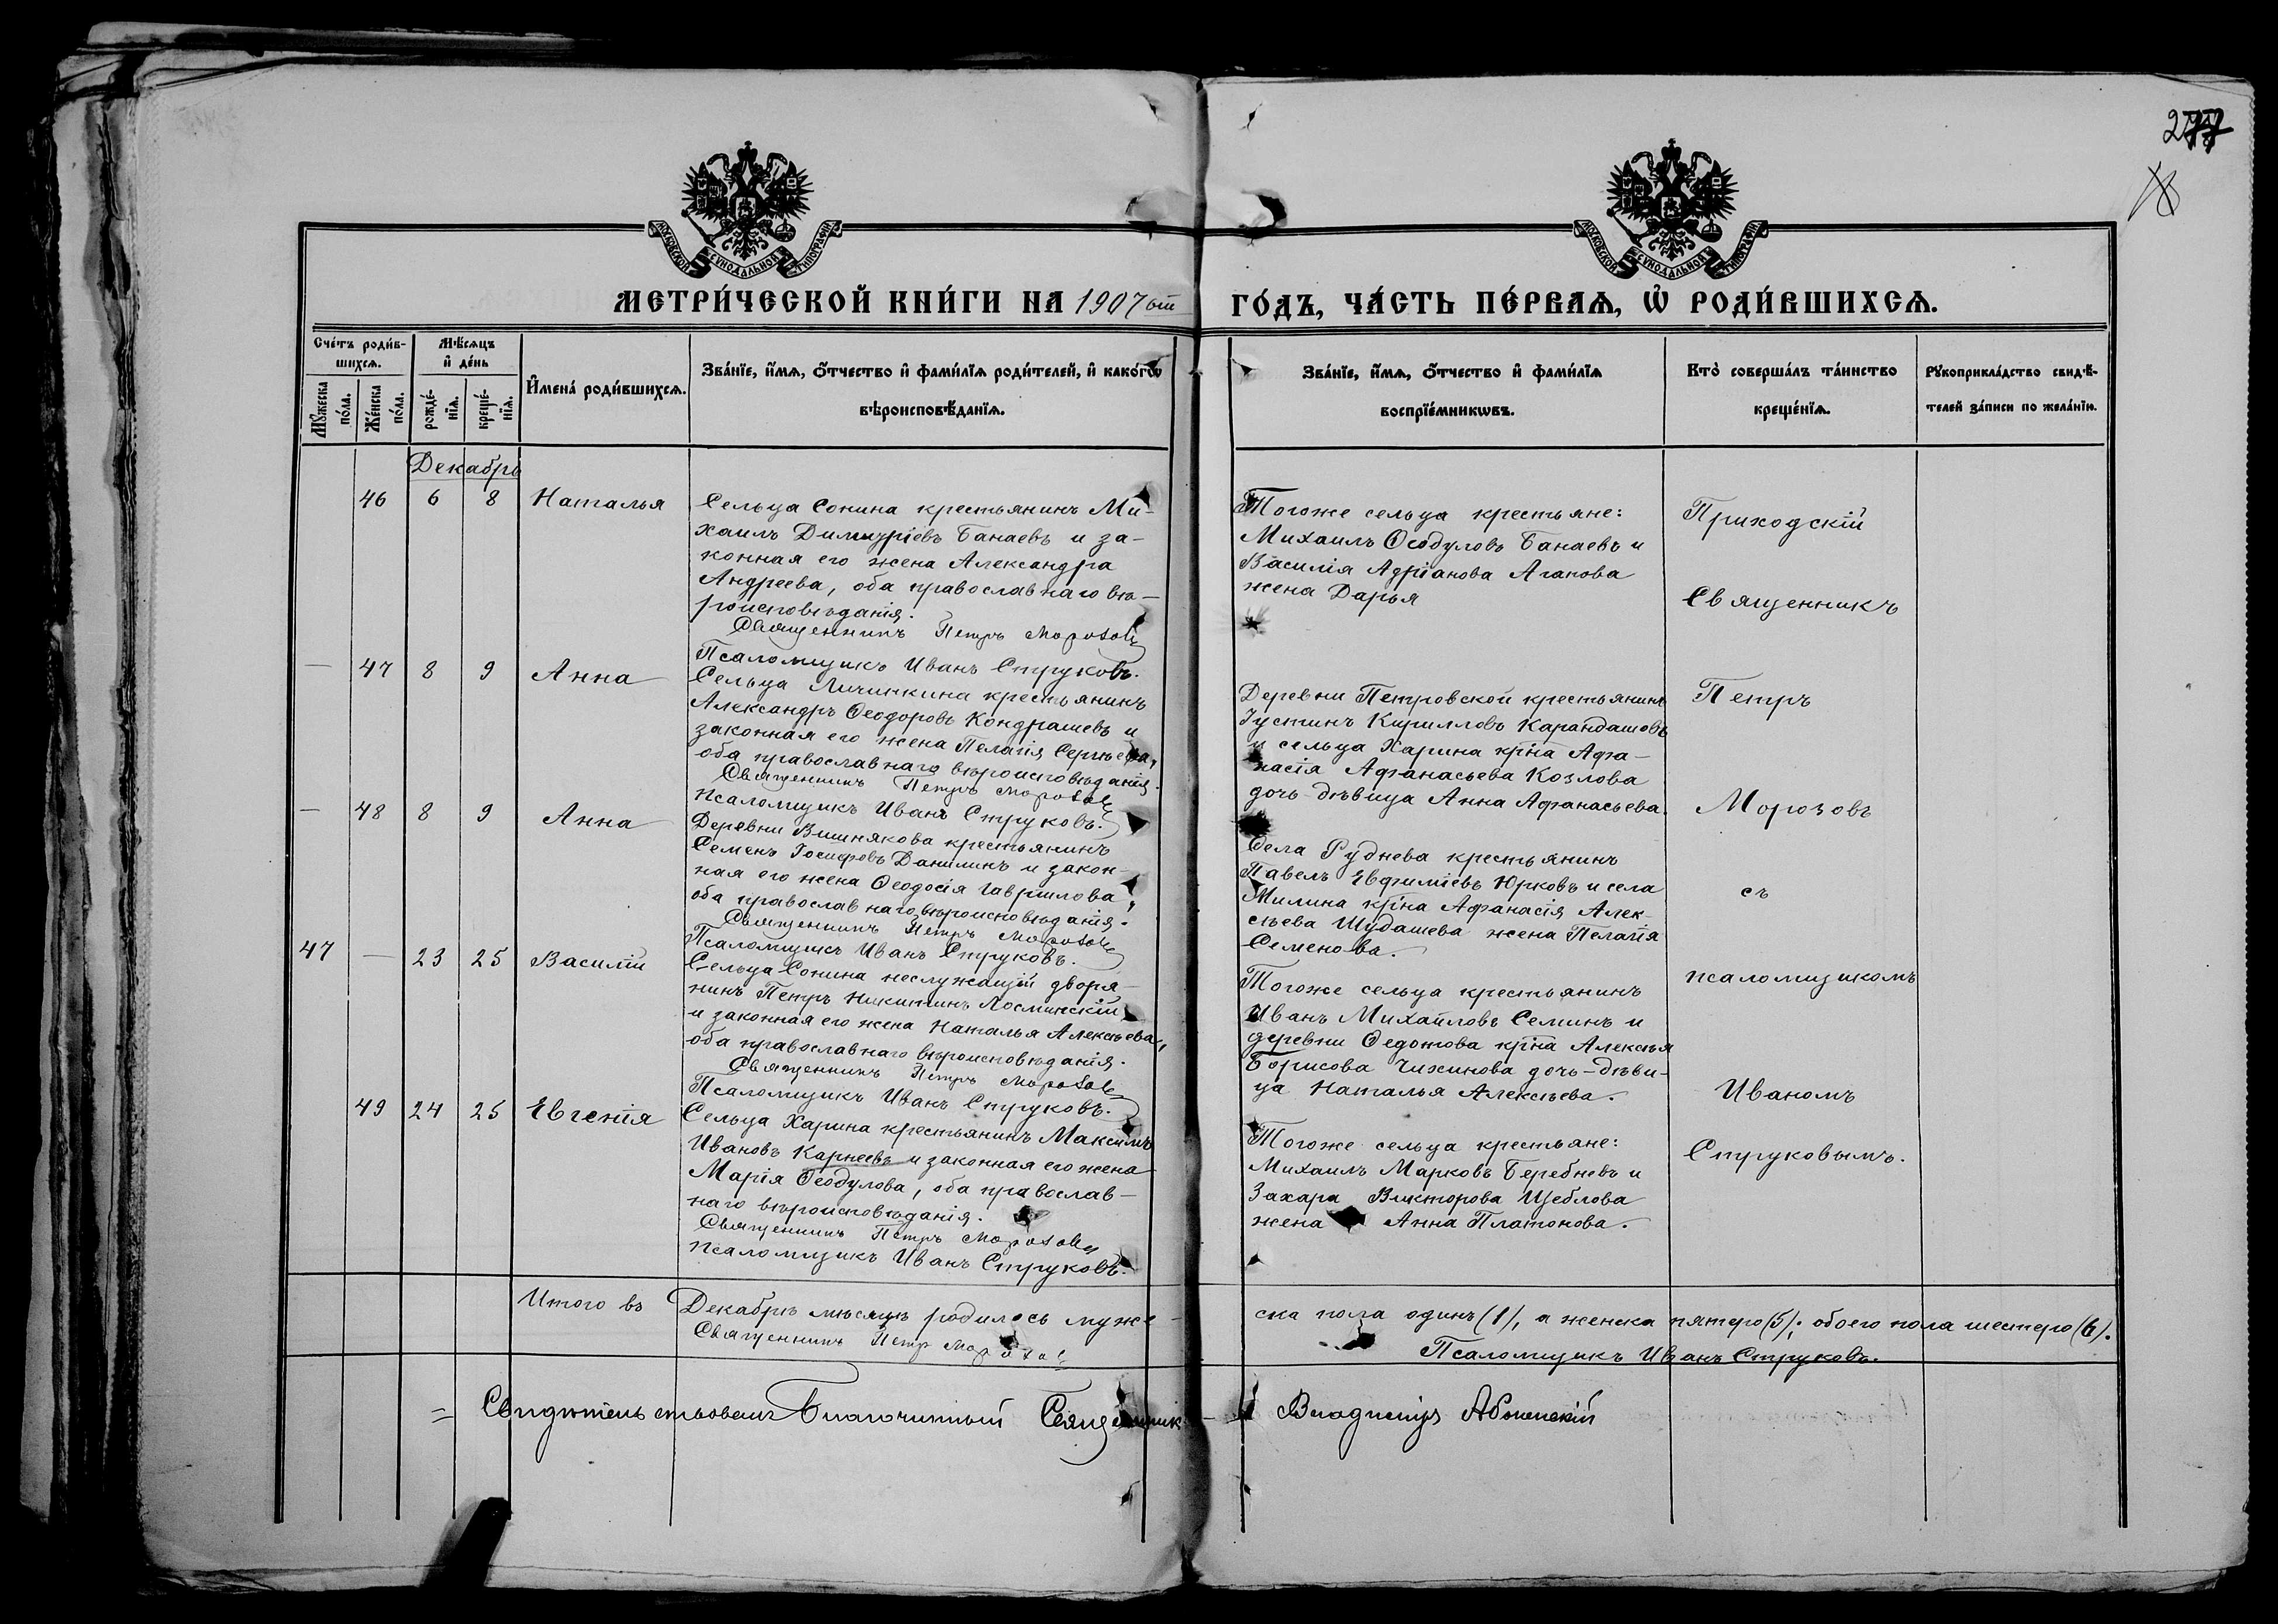 277
МОСКОВСКОЙ СУНОДАЛЬНОЙ ТИПОГРАФІИ
МОСКОВСКОЙ СУНОДАЛЬНОЙ ТИПОГРАФІИ
МЕТРИ́ЧЕСКОЙ КНИ́ГИ НА 1907 ой ГО́ДЪ, ЧА́СТЬ ПЕ́РВАѦ, Ѡ РОДИ́ВШИХСѦ.
Сче́тъ роди́в-
шихсѧ.
Мꙋ́жеска по́ла.
Же́нска по́ла.
Мѣ́сѧцъ
и де́нь
рожде́-нїѧ.
креще́-нїѧ.
И҆мена̀ роди́вшихсѧ.
Зва́нїе, и҆́мѧ, ѻ҆́тчество и҆ фами́лїѧ роди́телей, и҆ како́гѡ
вѣроисповѣ́данїѧ.
Зва́нїе, и҆́мѧ, ѻ҆́тчество и҆ фами́лїѧ
воспрїе́мникѡвъ.
Кто̀ соверша́лъ та́инство
креще́нїѧ.
Рꙋкоприкла́дство свидѣ́-
телей за́писи по жела́нїю.
Декабрь
46 6 8 Наталья
Сельца Сонина крестьянинъ Ми-
хаилъ Димитріевъ Банаевъ и за-
конная его жена Александра
Андреева, оба православнаго вѣ-
роисповѣданія.
Священникъ Петръ Морозовъ
Псаломщикъ Иванъ Струковъ.
Тогоже сельца крестьяне:
Михаилъ Ѳеодуловъ Банаевъ и
Василія Адріанова Агапова
жена Дарья
— 47 8 9 Анна
Сельца Личинкина крестьянинъ
Александръ Ѳеодоровъ Кондрашевъ и
законная его жена Пелагія Сергѣева,
оба православнаго вѣроисповѣданія.
Священникъ Петръ Морозовъ
Псаломщикъ Иванъ Струковъ.
Деревни Петровской крестьянинъ
Іустинъ Кирилловъ Карандашовъ
и сельца Харина кр͞іна Афа-
насія Афанасьева Козлова
дочь-дѣвица Анна Афанасьева.
— 48 8 9 Анна
Деревни Вишнякова крестьянинъ
Семенъ Іосифовъ Данилинъ и закон-
ная его жена Ѳеодосія Гаврилова,
оба православнаго вѣроисповѣданія.
Священникъ Петръ Морозовъ
Псаломщикъ Иванъ Струковъ.
Села Руднева крестьянинъ
Павелъ Евфиміевъ Юрковъ и села
Милина кр͞іна Афанасія Алек-
сѣева Шудашева жена Пелагія
Семенова.
47 — 23 25 Василій
Сельца Сонина неслужащій дворя-
нинъ Петръ Никитинъ Лосминскій
и законная его жена Наталья Алексѣева,
оба православнаго вѣроисповѣданія.
Священникъ Петръ Морозовъ
Псаломщикъ Иванъ Струковъ.
Тогоже сельца крестьянинъ
Иванъ Михайловъ Семинъ и
деревни Ѳедотова кр͞іна Алексѣя
Борисова Чихинова дочь-дѣви-
ца Наталья Алексѣева.
49 24 25 Евгенія
Сельца Харина крестьянинъ Максимъ
Ивановъ Карнеевъ и законная его жена
Марія Ѳеодулова, оба православ-
наго вѣроисповѣданія.
Священникъ Петръ Морозовъ
Псаломщикъ Иванъ Струковъ.
Тогоже сельца крестьяне:
Михаилъ Марковъ Беребневъ и
Захара Викторова Щеблова
жена Анна Платонова.
Приходскій
Священникъ
Петръ
Морозовъ
съ
псаломщикомъ
Иваномъ
Струковымъ.
Итого въ Декабрѣ мѣсяцѣ родилось муже-ска пола одинъ (1), а женска пятеро (5); обоего пола шестеро (6).
Священникъ Петр Морозовъ
Псаломщикъ Иванъ Струковъ.
= Свидѣтельствовалъ Благочинный Священник